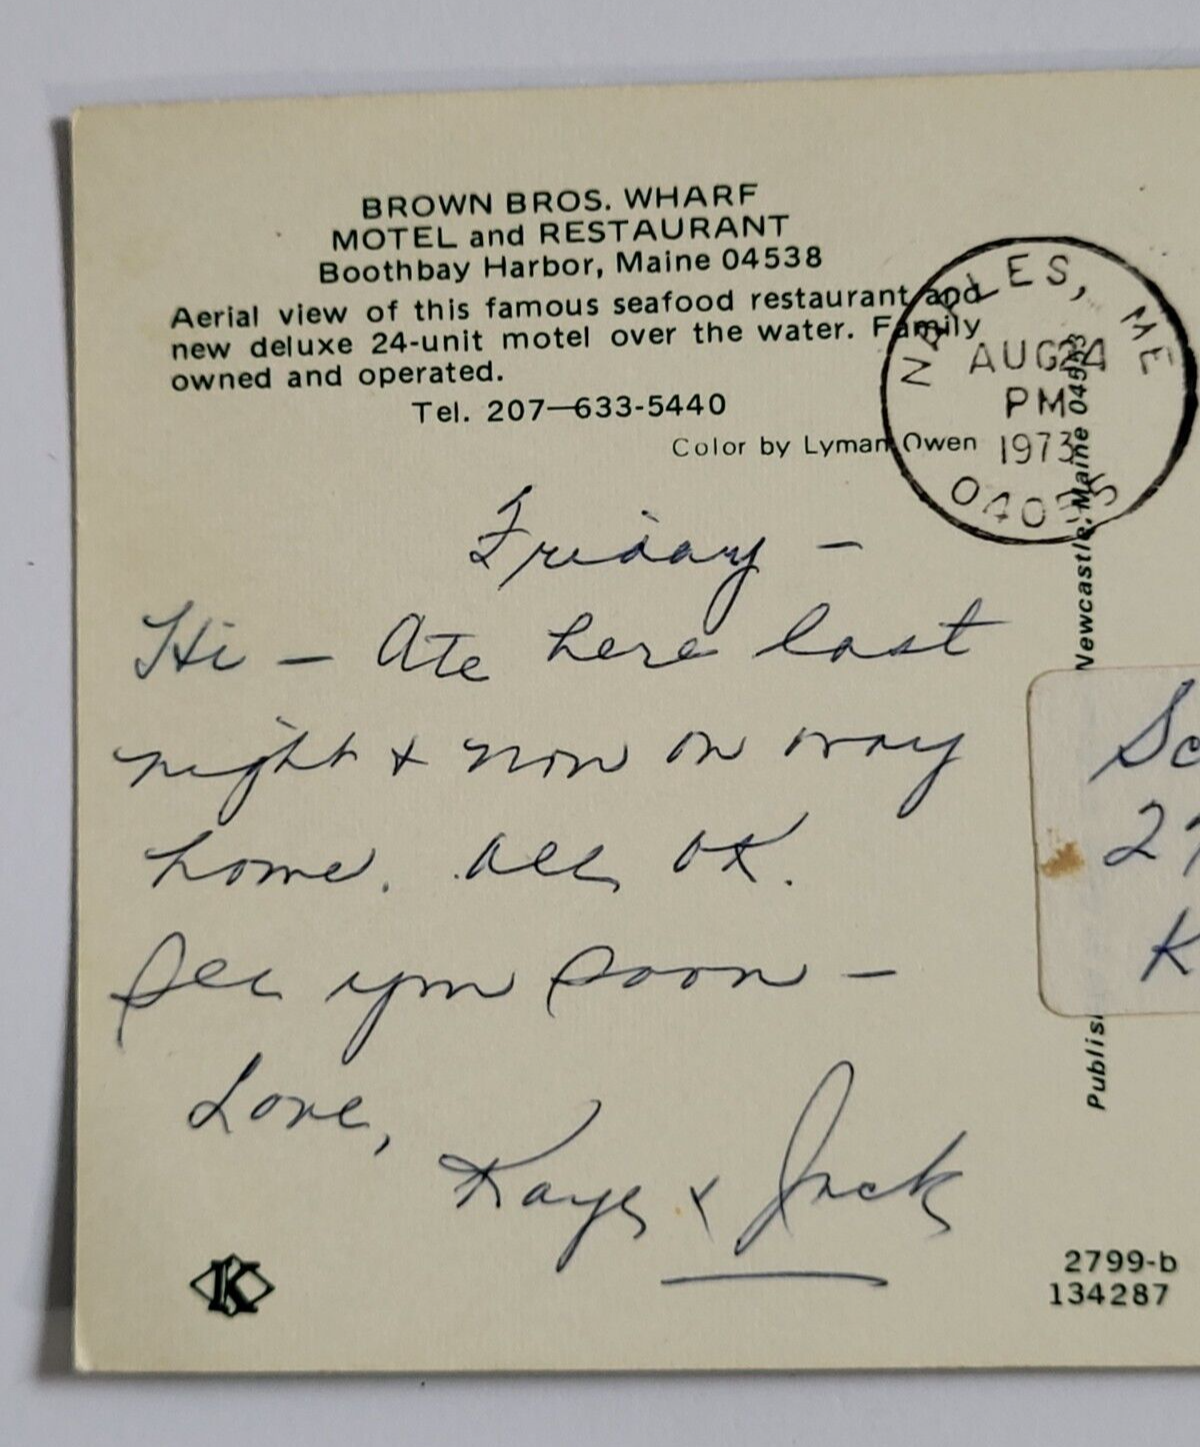 BROWN BROS. WHARF
MOTEL and RESTAURANT
Boothbay Harbor, Maine 04538
Aerial view of this famous seafood restaurant and
new deluxe 24-unit motel over the water. Family
owned and operated.
Tel. 207—633-5440
Color by Lyman Owen
NAPLES, ME
AUG 24
PM
1973
04055
Friday —
Hi — Ate here last
night & now on way
home. All OK.
See you soon —
Love,
Kaye & Jack
Newcastle, Maine 04553
Publis
Sc
27
K
K
2799-b
134287